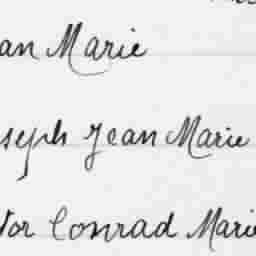 an Marie
seph Jean Marie
tor Conrad Marie